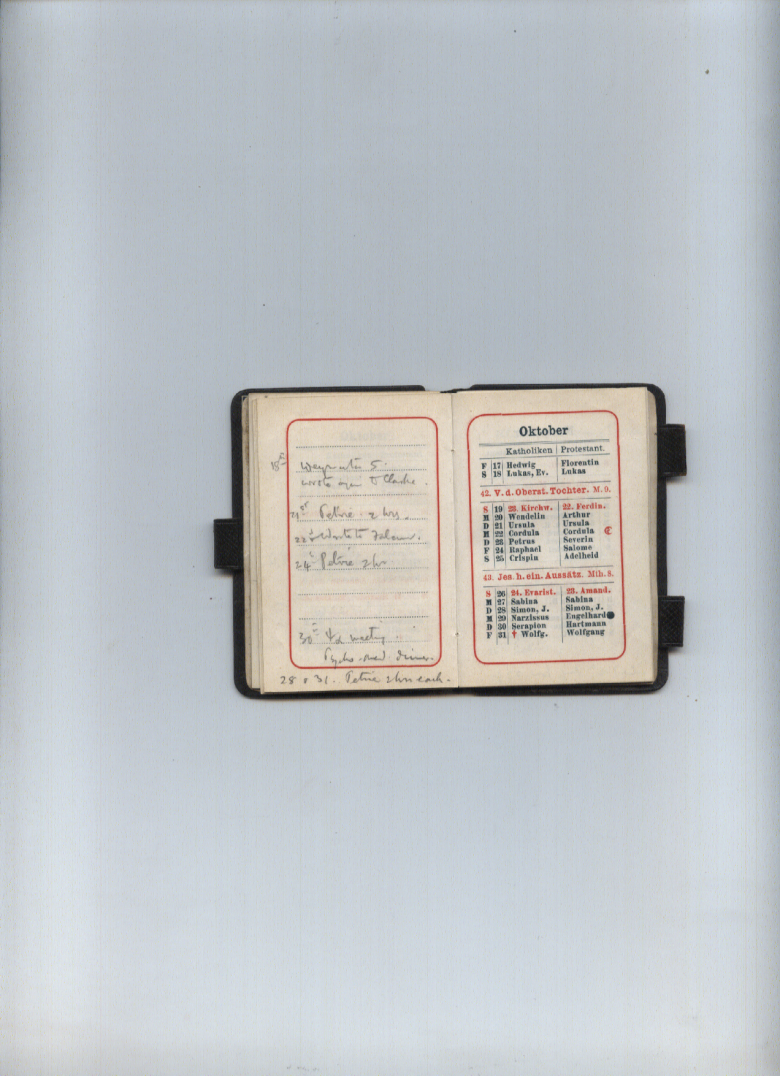 18
5.
wrote again to Clarke.
21st Petrie 2 hrs.
22nd Wrote to
24th Petrie 2 hrs
30th meeting
Psycho-med. dinner.
28 & 31. Petrie 2 hrs each.
Oktober
Katholiken Protestant.
F 17 Hedwig Florentin
S 18 Lukas, Ev. Lukas
42. V. d. Oberst. Tochter. M. 9.
S 19 23. Kirchw. 22. Ferdin.
M 20 Wendelin Arthur
D 21 Ursula Ursula
M 22 Cordula Cordula ☾
D 23 Petrus Severin
F 24 Raphael Salome
S 25 Crispin Adelheid
43. Jes. h. ein. Aussätz. Mth. 8.
S 26 24. Evarist. 23. Amand.
M 27 Sabina Sabina
D 28 Simon, J. Simon, J.
M 29 Narzissus Engelhard ●
D 30 Serapion Hartmann
F 31 † Wolfg. Wolfgang